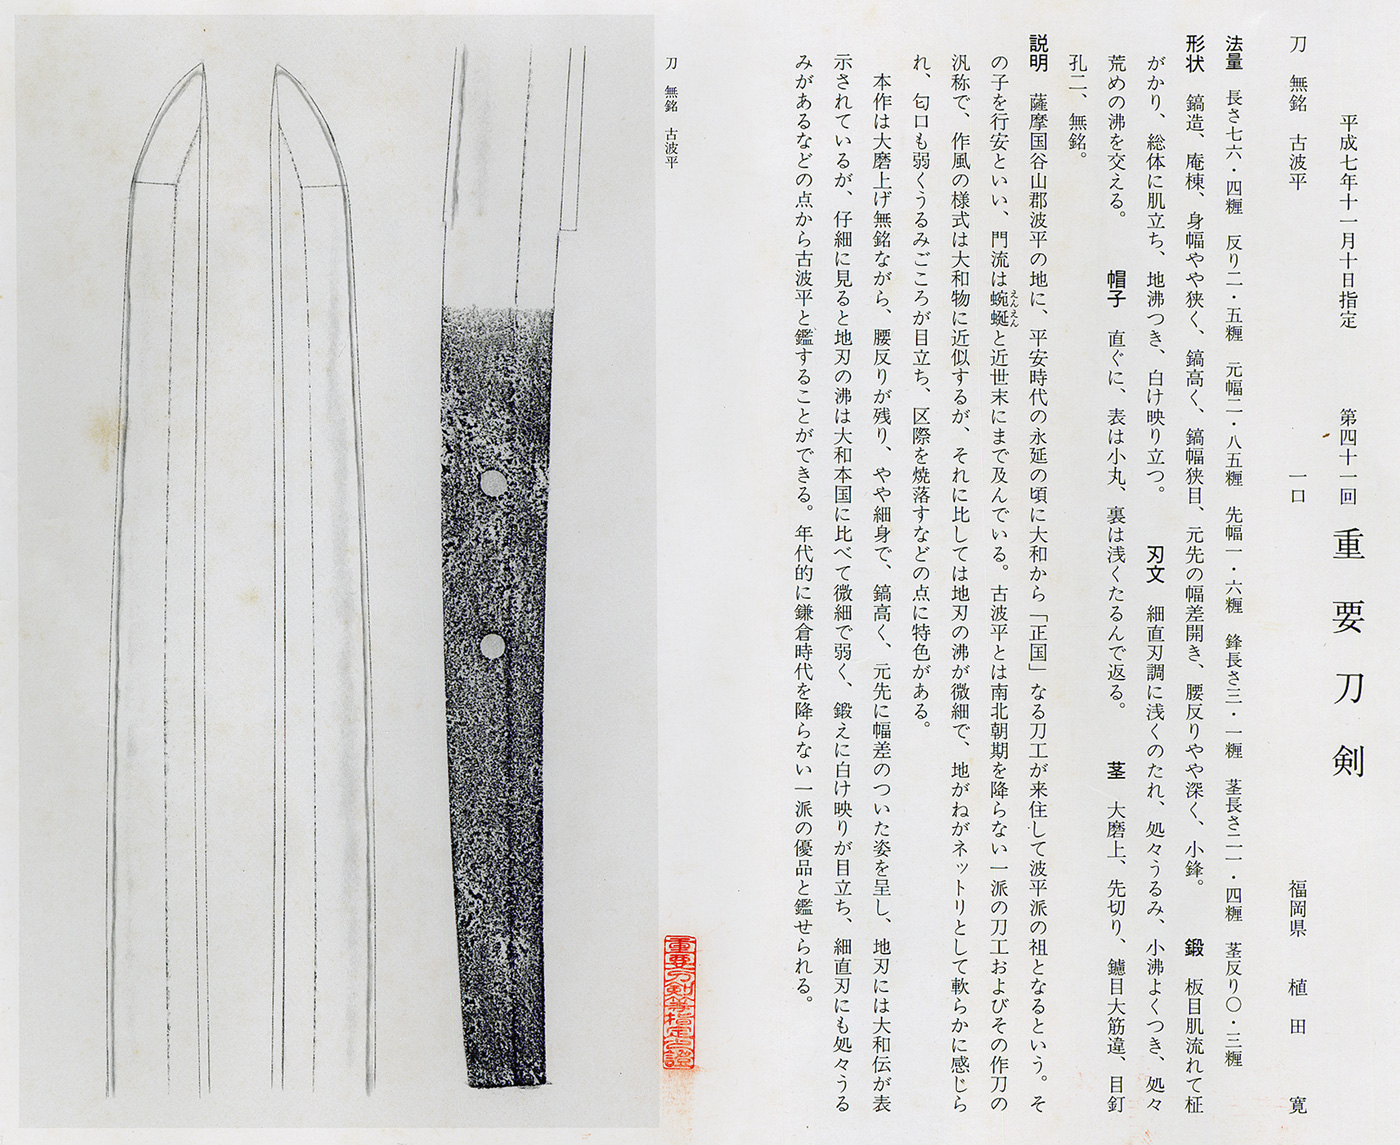 平成七年十一月十日指定　第四十一回　重要刀剣
刀　無銘　古波平　一口　福岡県　植田　寛
法量　長さ七六・四糎　反り二・五糎　元幅二・八五糎　先幅一・六糎　鋒長さ三・一糎　茎長さ二一・四糎　茎反り〇・三糎
形状　鎬造、庵棟、身幅やや狭く、鎬高く、鎬幅狭目、元先の幅差開き、腰反りやや深く、小鋒。　鍛　板目肌流れて柾
がかり、総体に肌立ち、地沸つき、白け映り立つ。　刃文　細直刃調に浅くのたれ、処々うるみ、小沸よくつき、処々
荒めの沸を交える。　帽子　直ぐに、表は小丸、裏は浅くたるんで返る。　茎　大磨上、先切り、鑢目大筋違、目釘
孔二、無銘。
説明　薩摩国谷山郡波平の地に、平安時代の永延の頃に大和から「正国」なる刀工が来住して波平派の祖となるという。そ
の子を行安といい、門流は蜿蜒えんえんと近世末にまで及んでいる。古波平とは南北朝期を降らない一派の刀工およびその作刀の
汎称で、作風の様式は大和物に近似するが、それに比しては地刃の沸が微細で、地がねがネットリとして軟らかに感じら
れ、匂口も弱くうるみごころが目立ち、区際を焼落すなどの点に特色がある。
本作は大磨上げ無銘ながら、腰反りが残り、やや細身で、鎬高く、元先に幅差のついた姿を呈し、地刃には大和伝が表
示されているが、仔細に見ると地刃の沸は大和本国に比べて微細で弱く、鍛えに白け映りが目立ち、細直刃にも処々うる
みがあるなどの点から古波平と鑑することができる。年代的に鎌倉時代を降らない一派の優品と鑑せられる。
刀　無銘　古波平
重要刀剣等指定之證